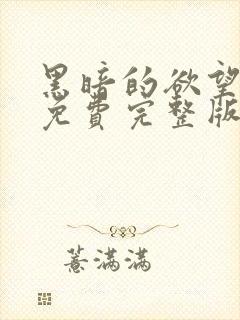 黑暗的欲望
免費完整版
薏滿滿